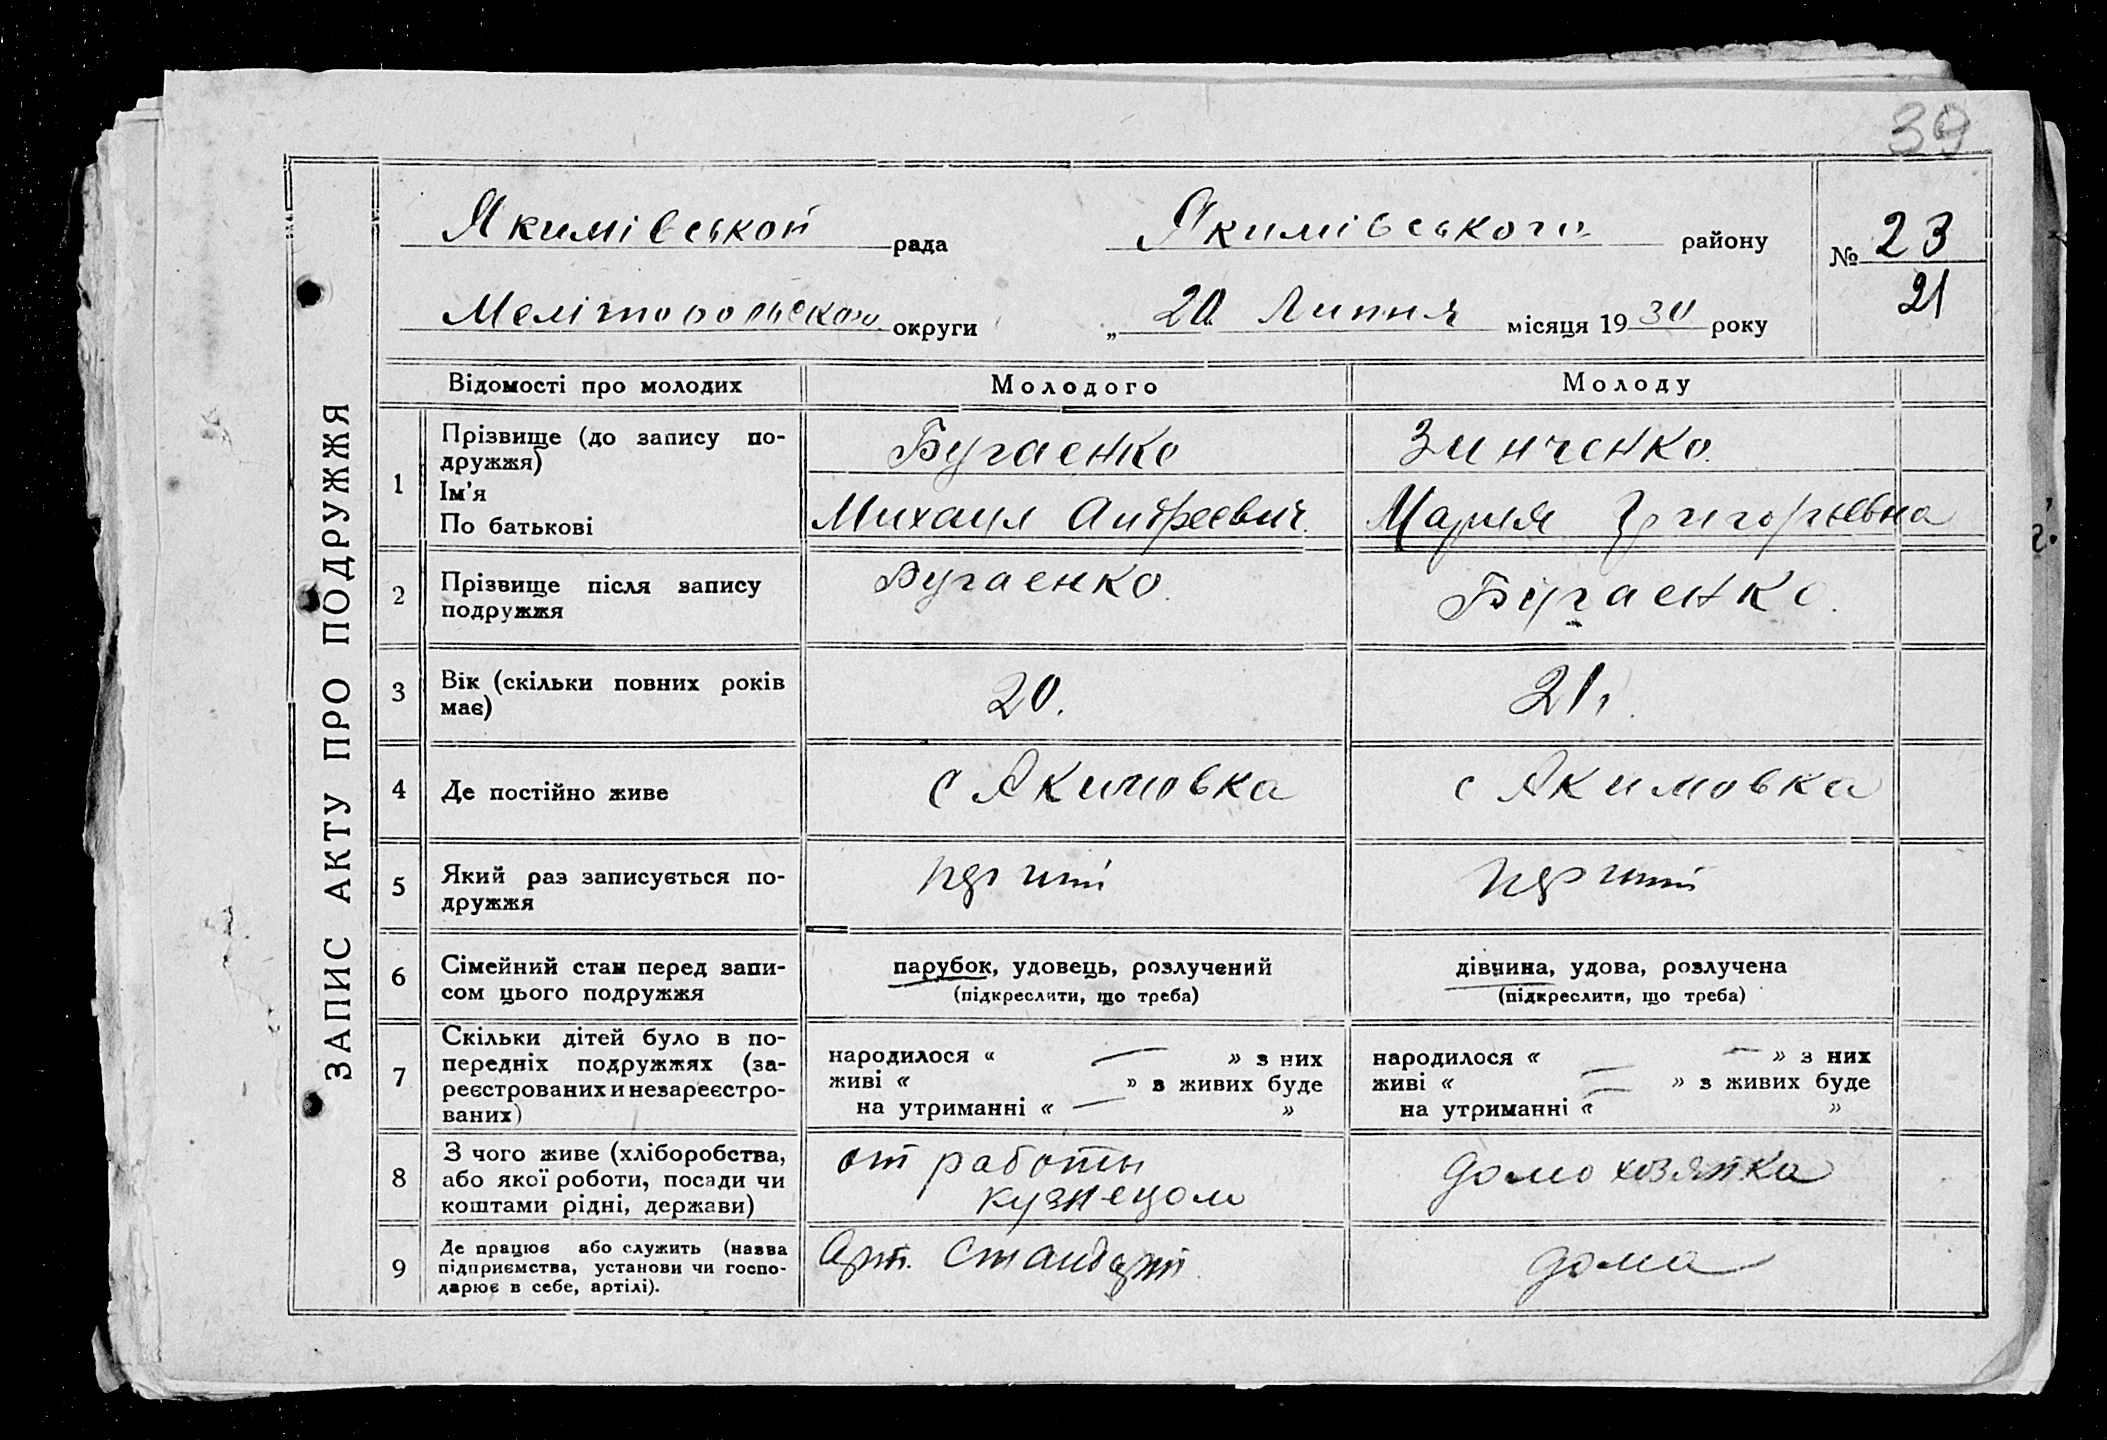 39
Якимівської рада Якимівського району № 23
Мелітопольскою округи „ 20 Липня місяця 1930 року 21
ЗАПИС АКТУ ПРО ПОДРУЖЖЯ
Відомості про молодих Молодого Молоду
1 Прізвище (до запису по-
дружжя)
Бугаенко Зинченко.
Ім'я
По батькові
Михаил Андреевич. Мария Григорьевна
2 Прізвище після запису
подружжя
Бугаенко. Бугаенко.
3 Вік (скільки повних років
має)
20. 21.
4 Де постійно живе с Акимовка с Акимовка
5 Який раз записується по-
дружжя
6 Сімейний стан перед запи-
сом цього подружжя
парубок, удовець, розлучений
(підкреслити, що треба)
дівчина, удова, розлучена
(підкреслити, що треба)
7 Скільки дітей було в по-
передніх подружжях (за-
реєстрованих и незареєстро-
ваних)
народилося « — » з них
живі « » з живих буде
на утриманні « — »
народилося « — » з них
живі « — » з живих буде
на утриманні « — »
8 З чого живе (хліборобства,
або якої роботи, посади чи
коштами рідні, держави)
от работы
кузнецом
домохозяйка
9 Де працює або служить (назва
підприємства, установи чи госпо-
дарює в себе, артілі).
Арт. Стандарт. дома